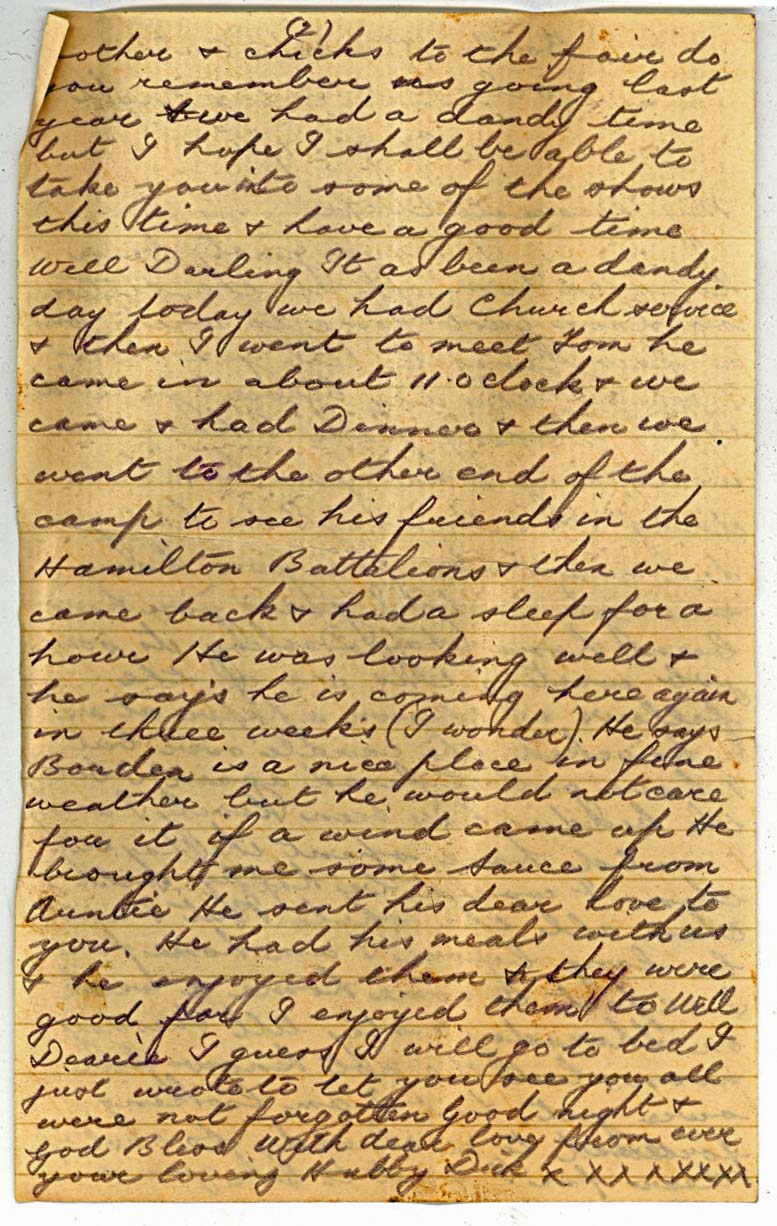 (2)
other & chicks to the fair do
you remember us going last
year & we had a dandy time
but I hope I shall be able to
take you into some of the shows
this time & have a good time
Well Darling It as been a dandy
day today we had Church service
& then I went to meet Tom he
came in about 11.oclock & we
came & had Dinner & then we
went to the other end of the
camp to see his friends in the
Hamilton Battalions & then we
came back & had a sleep for a
hour He was looking well &
he says he is coming here again
in three weeks (I wonder). He says
Borden is a nice place in fine
weather but he would not care
for it if a wind came up He
brought me some sauce from
Auntie He sent his dear love to
you. He had his meals with us
& he enjoyed them & they were
good for I enjoyed them to Well
Dearie I guess I will go to bed I
just wrote to let you see you all
were not forgotten Good night &
God Bless With dear love from ever
your loving Hubby Dick x x x x x x x x